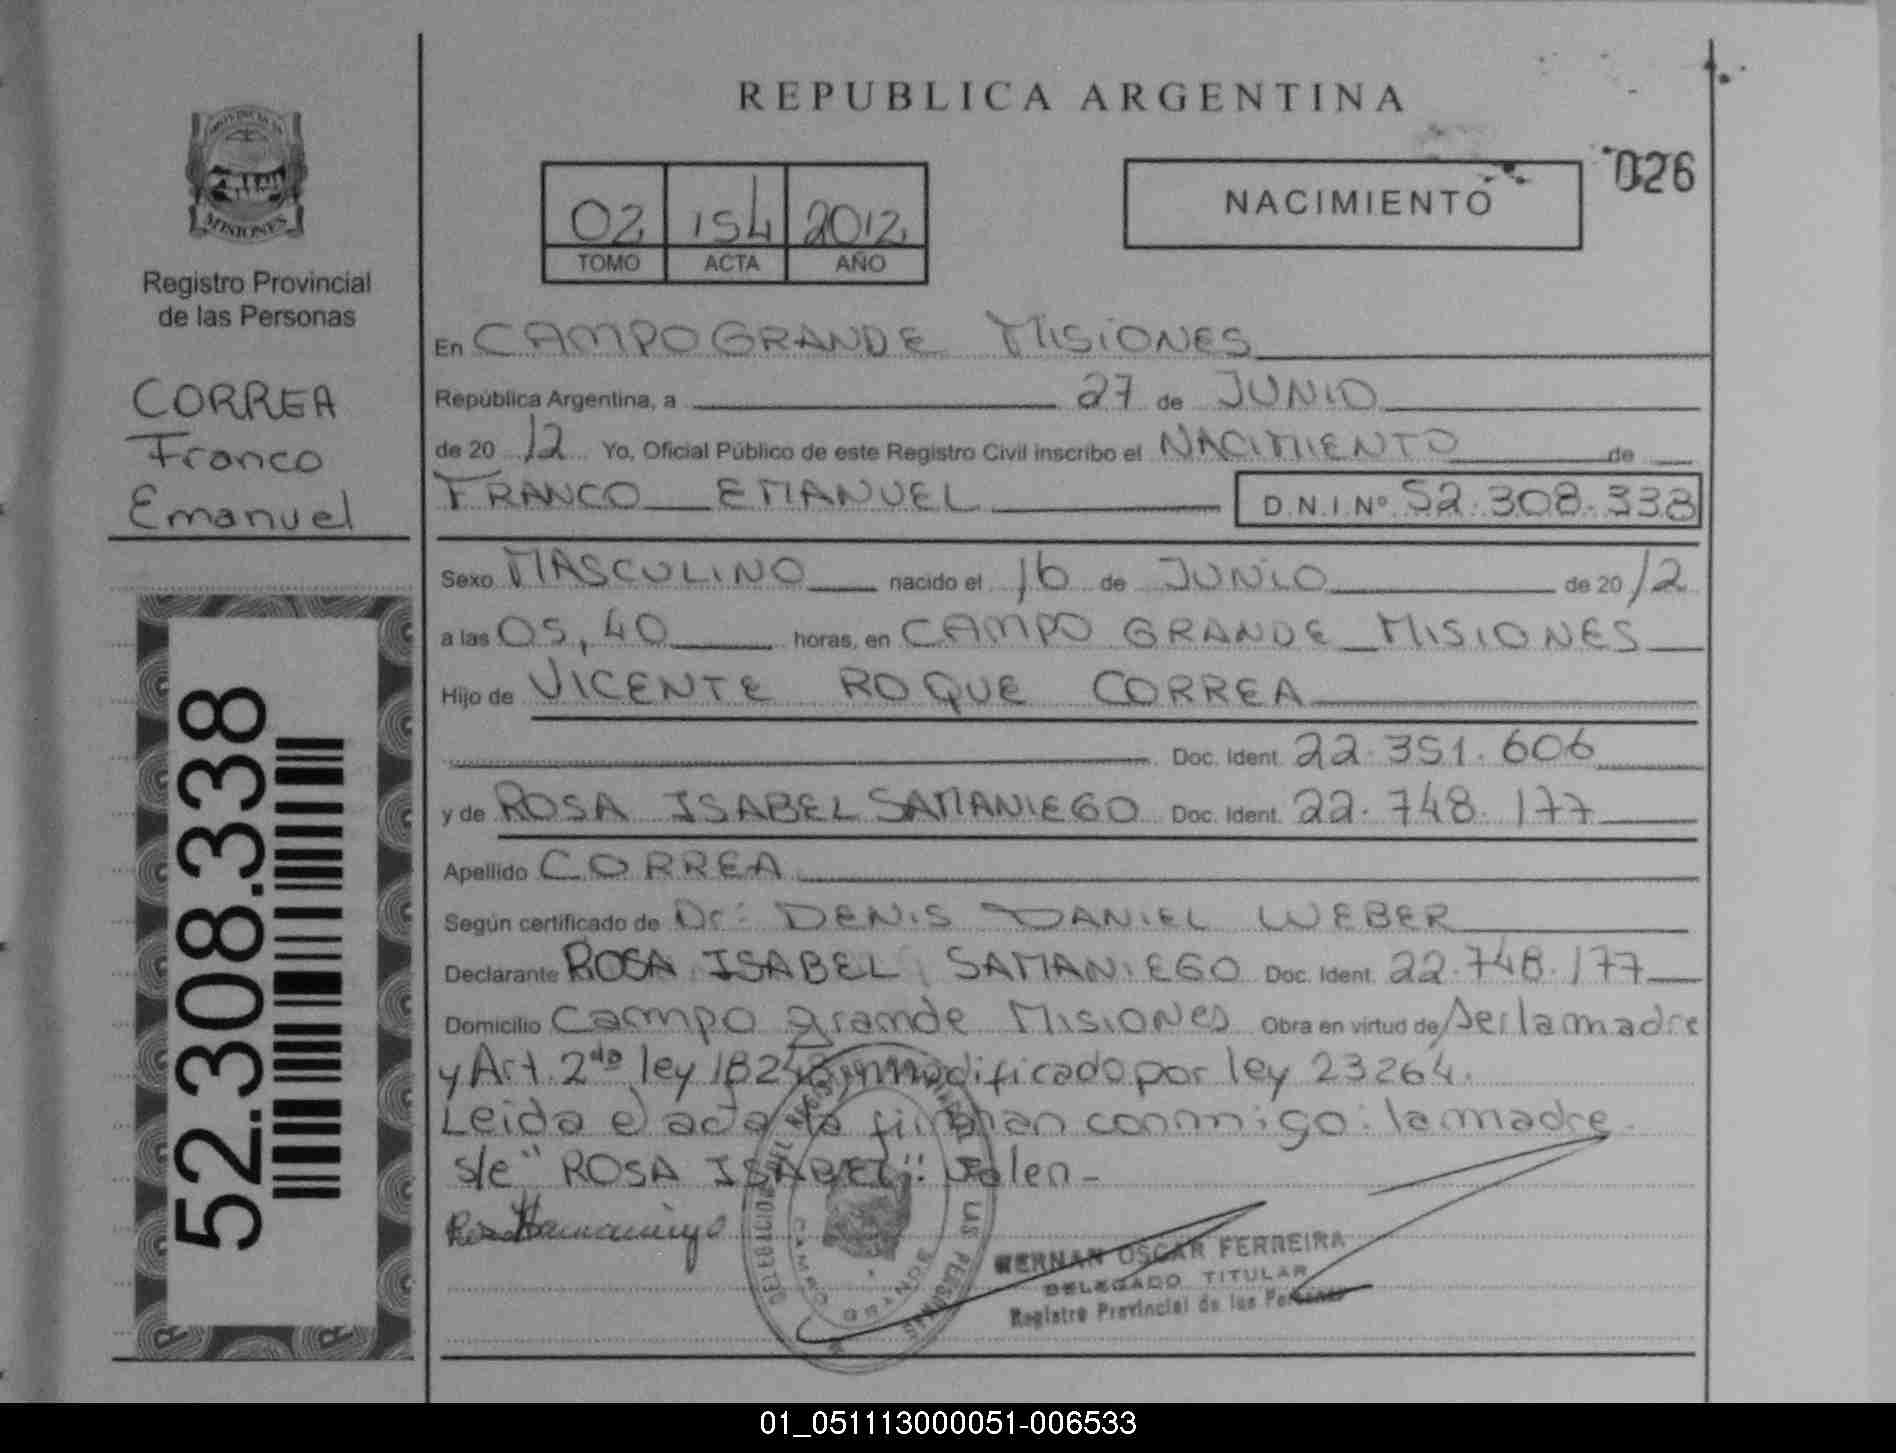 REPUBLICA ARGENTINA
026
NACIMIENTO
02 154 2012
TOMO ACTA AÑO
MISIONES
Registro Provincial
de las Personas
CORREA
Franco
Emanuel
52.308.338
En CAMPO GRANDE MISIONES
República Argentina, a 27 de JUNIO
de 20 12 Yo, Oficial Público de este Registro Civil inscribo el NACIMIENTO de
FRANCO EMANUEL D.N.I.Nº 52.308.338
Sexo MASCULINO nacido el 16 de JUNIO de 20 12
a las 05,40 horas, en CAMPO GRANDE MISIONES
Hijo de VICENTE ROQUE CORREA
Doc. Ident. 22.351.606
y de ROSA ISABEL SAMANIEGO Doc. Ident. 22.748.177
Apellido CORREA
Según certificado de Dr: DENIS DANIEL WEBER
Declarante ROSA ISABEL SAMANIEGO Doc. Ident. 22.748.177
Domicilio Campo Grande Misiones Obra en virtud de ser la madre
y Art. 2do ley 18248 modificado por ley 23264.
Leida el acta la firman conmigo: la madre.
s/e "ROSA ISABEL": Valen-
HERNAN OSCAR FERREIRA
DELEGADO TITULAR
Registro Provincial de las Personas
01_051113000051-006533